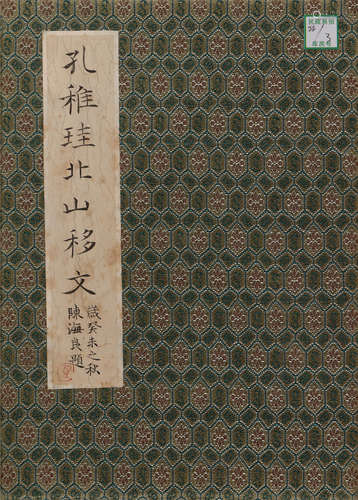 孔稚珪北山移文
歲癸未之秋
陳海良題